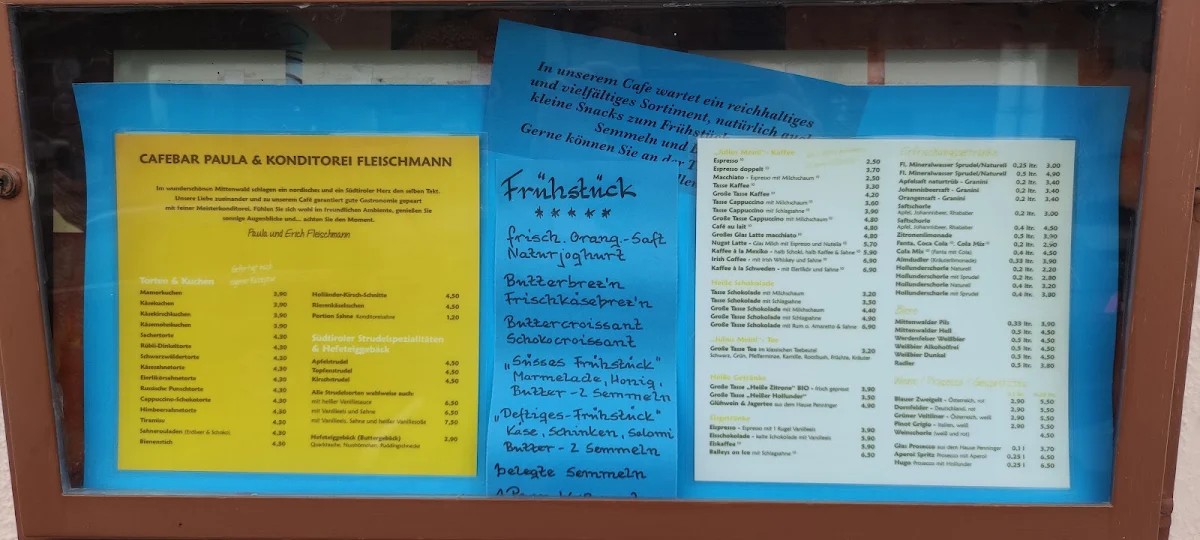 In unserem Cafe wartet ein reichhaltiges
und vielfältiges Sortiment, natürlich auch
kleine Snacks zum Frühstück
Semmeln und
Gerne können Sie an der
CAFEBAR PAULA & KONDITOREI FLEISCHMANN
Im wunderschönen Mittenwald schlagen ein nordisches und ein Südtiroler Herz den selben Takt.
Unsere Liebe zueinander und zu unserem Café garantiert gute Gastronomie gepaart
mit feiner Meisterkonditorei. Fühlen Sie sich wohl im freundlichen Ambiente, genießen Sie
sonnige Augenblicke und... achten Sie den Moment.
Paula und Erich Fleischmann
Torten & Kuchen
Mamorkuchen 3,90
Käsekuchen 3,90
Käsekirschkuchen 3,90
Käsemohnkuchen 3,90
Sachertorte 4,30
Rübli-Dinkeltorte 4,30
Schwarzwäldertorte 4,30
Käsesahnetorte 4,30
Eierlikörsahnetorte 4,30
Russische Punschtorte 4,30
Cappuccino-Schokotorte 4,30
Himbeersahnetorte 4,30
Tiramisu 4,30
Sahnerouladen (Erdbeer & Schoko) 4,30
Bienenstich 4,30
Holländer-Kirsch-Schnitte 4,50
Riesenkäsekuchen 4,50
Portion Sahne Konditorsahne 1,20
Südtiroler Strudelspezialitäten
& Hefeteiggebäck
Apfelstrudel 4,50
Topfenstrudel 4,50
Kirschstrudel 4,50
Alle Strudelsorten wahlweise auch:
mit heißer Vanillesauce 6,50
mit Vanilleeis und Sahne 6,50
mit Vanilleeis, Sahne und heißer Vanillesoße 7,50
Hefeteiggebäck (Buttergebäck) 3,90
Quarktasche, Nusshörnchen, Puddingschnecke
Frühstück
*****
frisch. Orang.-Saft
Naturjoghurt
Butterbrez'n
Frischkäsebrez'n
Buttercroissant
Schokocroissant
„Süsses Frühstück"
Marmelade, Honig,
Butter - 2 Semmeln
„Deftiges-Frühstück"
Käse, Schinken, Salami
Butter - 2 Semmeln
belegte Semmeln
„Julius Meinl" - Kaffee
Espresso 2,50
Espresso doppelt 3,70
Macchiato - Espresso mit Milchschaum 2,50
Tasse Kaffee 3,30
Große Tasse Kaffee 4,20
Tasse Cappuccino mit Milchschaum 3,60
Tasse Cappuccino mit Schlagsahne 3,90
Große Tasse Cappuccino mit Milchschaum 4,80
Café au lait 4,80
Großes Glas Latte macchiato 4,80
Nugat Latte - Glas Milch mit Espresso und Nutella 5,70
Kaffee à la Mexiko - halb Schoko, halb Kaffee & Sahne 5,90
Irish Coffee - mit Irish Whiskey und Sahne 6,90
Kaffee à la Schweden - mit Eierlikör und Sahne 6,90
Heiße Schokolade
Tasse Schokolade mit Milchschaum 3,20
Tasse Schokolade mit Schlagsahne 3,50
Große Tasse Schokolade mit Milchschaum 4,40
Große Tasse Schokolade mit Schlagsahne 4,90
Große Tasse Schokolade mit Rum o. Amaretto & Sahne 6,90
„Julius Meinl" - Tee
Große Tasse Tee im klassischen Teebeutel 3,20
Schwarz, Grün, Pfefferminze, Kamille, Rooibush, Früchte, Kräuter
Heiße Getränke
Große Tasse „Heiße Zitrone" BIO - frisch gepresst 3,90
Große Tasse „Heißer Hollunder" 3,50
Glühwein & Jagertee aus dem Hause Penninger 4,90
Eisgetränke
Eispresso - Espresso mit 1 Kugel Vanilleeis 3,90
Eisschokolade - kalte Schokolade mit Vanilleeis 5,90
Eiskaffee 5,90
Baileys on Ice mit Schlagsahne 6,50
Erfrischungsgetränke
Fl. Mineralwasser Sprudel/Naturell 0,25 ltr. 3,00
Fl. Mineralwasser Sprudel/Naturell 0,5 ltr. 4,90
Apfelsaft naturtrüb - Granini 0,2 ltr. 3,40
Johannisbeersaft - Granini 0,2 ltr. 3,40
Orangensaft - Granini 0,2 ltr. 3,40
Saftschorle
Apfel, Johannisbeer, Rhabarber 0,2 ltr. 3,00
Saftschorle
Apfel, Johannisbeer, Rhabarber 0,4 ltr. 4,50
Zitronenlimonade 0,5 ltr. 3,90
Fanta, Coca Cola Cola Mix 0,2 ltr. 2,90
Cola Mix (Fanta mit Cola) 0,4 ltr. 4,50
Almdudler (Kräuterlimonade) 0,33 ltr. 3,90
Hollunderschorle Naturell 0,2 ltr. 2,20
Hollunderschorle mit Sprudel 0,2 ltr. 2,80
Hollunderschorle Naturell 0,4 ltr. 3,20
Hollunderschorle mit Sprudel 0,4 ltr. 3,80
Biere
Mittenwalder Pils 0,33 ltr. 3,90
Mittenwalder Hell 0,5 ltr. 4,50
Werdenfelser Weißbier 0,5 ltr. 4,50
Weißbier Alkoholfrei 0,5 ltr. 4,50
Weißbier Dunkel 0,5 ltr. 4,50
Radler 0,5 ltr. 3,80
Blauer Zweigelt - Österreich, rot 2,90 5,50
Dornfelder - Deutschland, rot 2,90 5,50
Grüner Veltliner - Österreich, weiß 2,90 5,50
Pinot Grigio - Italien, weiß 2,90 5,50
Weinschorle (weiß und rot) 4,50
Glas Prosecco aus dem Hause Penninger 0,1 l 3,70
Aperol Spritz Prosecco mit Aperol 0,25 l 6,50
Hugo Prosecco mit Hollunder 0,25 l 6,50